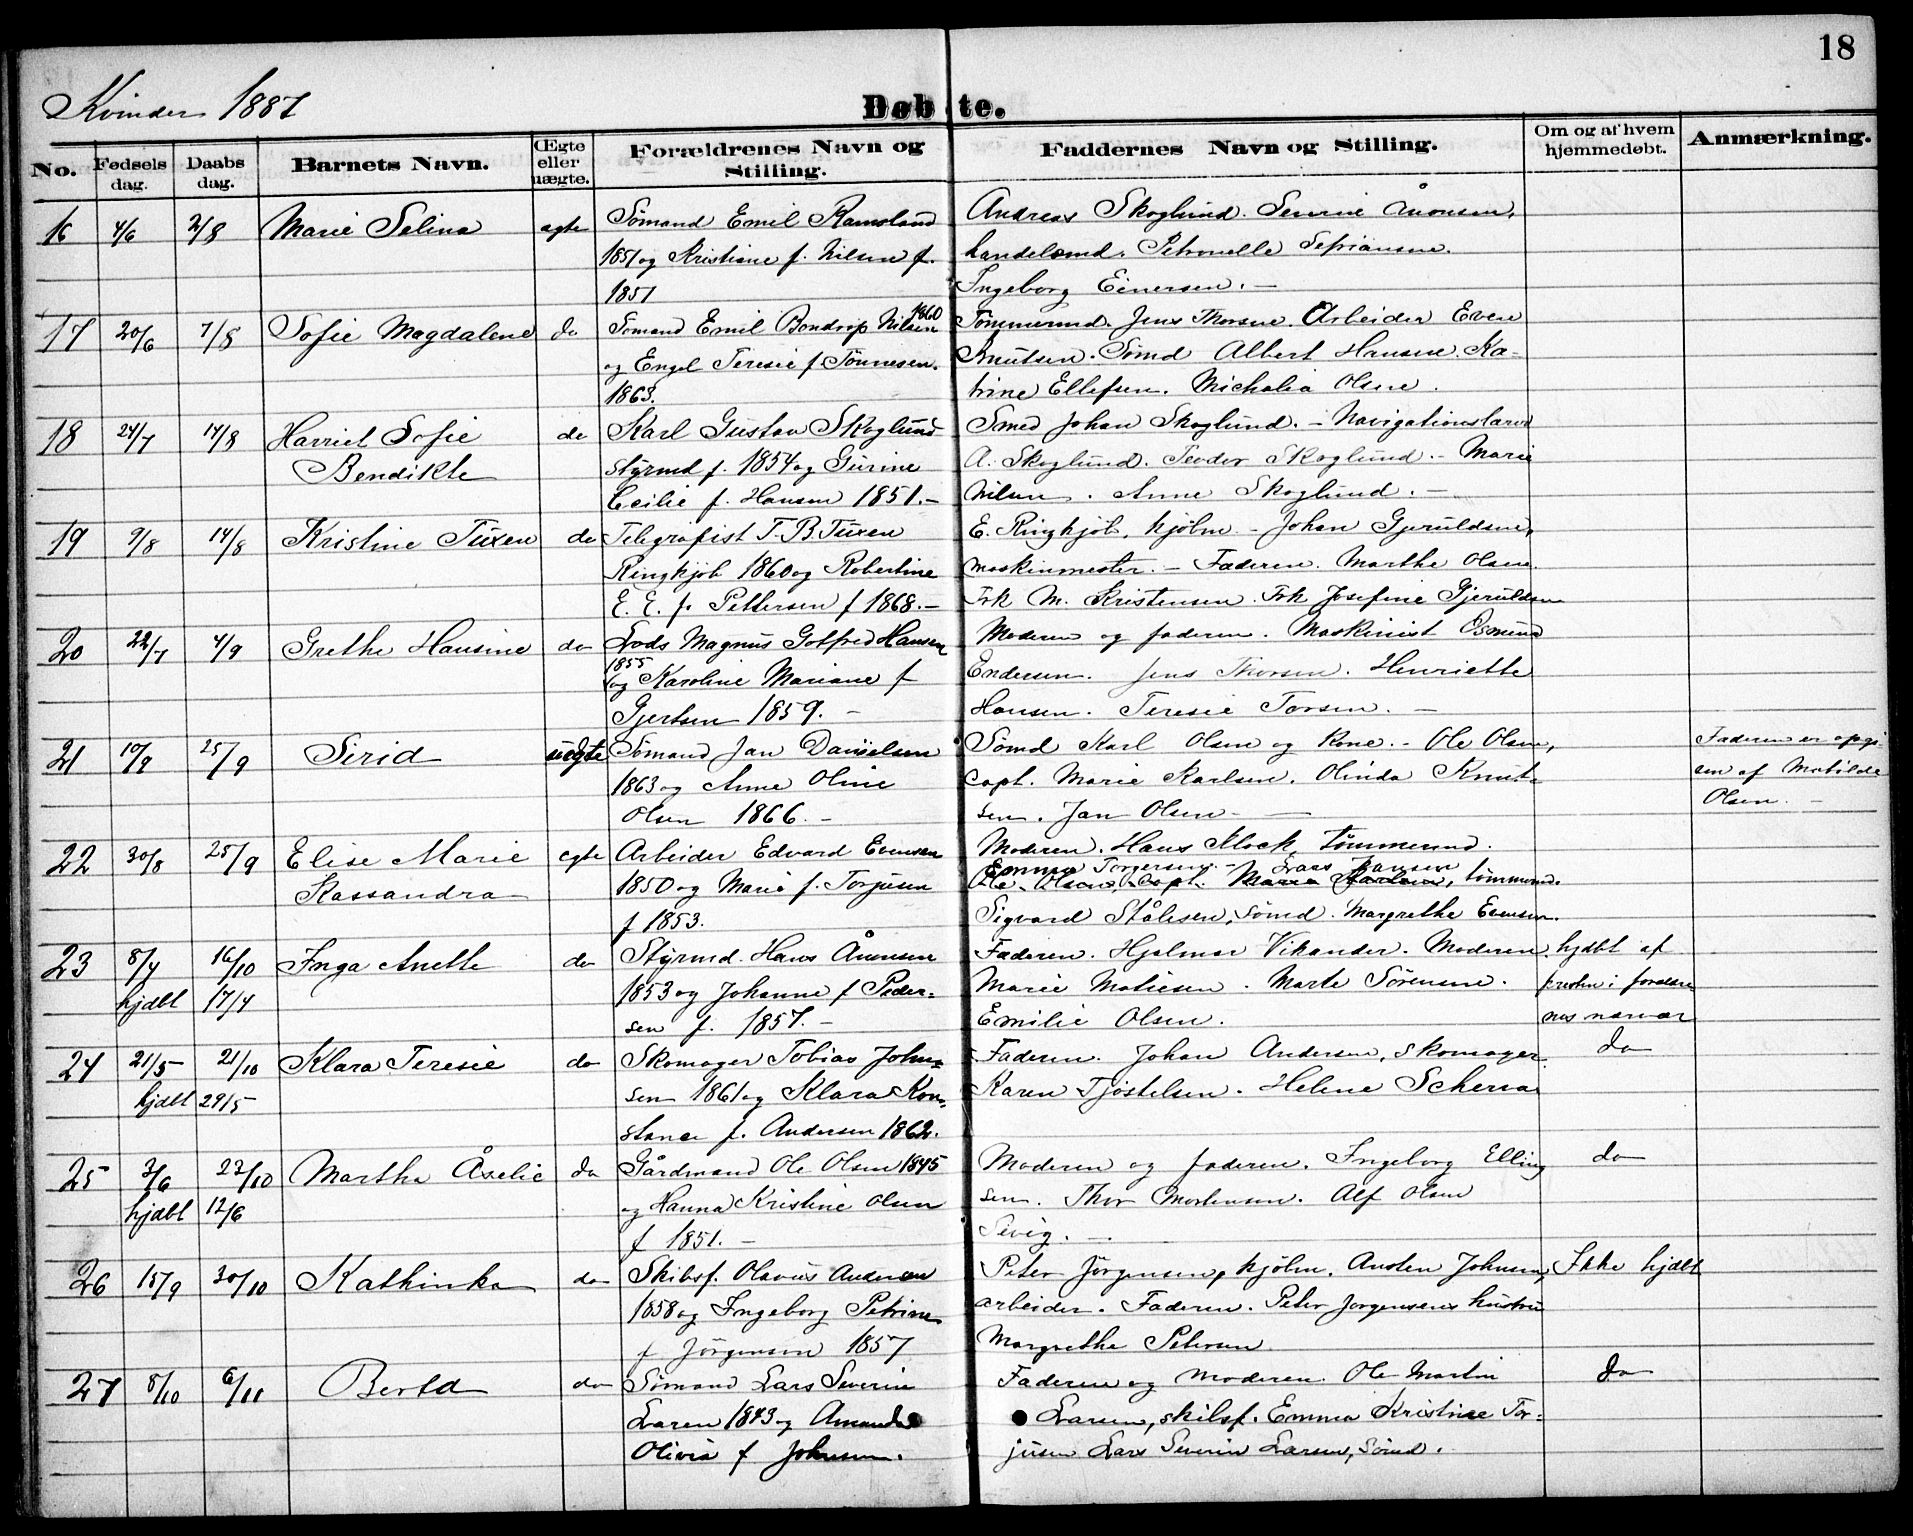 18
Kvinder 1887
Døbte.
No. Fødsels dag. Daabs dag. Barnets Navn. Œgte eller uægte. Forældrenes Navn og Stilling. Faddernes Navn og Stilling. Om og af hvem hjemmedøbt. Anmærkning.
16 4/6 2/8 Marie Selina egte Sømand Emil Ramsland Andreas Skoglund. Severine Monsen,
1851 og Kristiane f. Nilsen f. handelsmd. Petronelle
1851 Ingeborg Einersen. —
17 20/6 7/8 Sofie Magdalene do Sømand Emil Bondrop Nilsen 1860 Tømmermd. Jens Thorsen. Arbeider Even
og Engel Teresie f. Tønnesen. Knutsen. Sømd Albert Hansen. Ka-
1863. trine Ellefsen. Michalia Olsen.
18 24/7 14/8 Harriet Sofie do Karl Gustav Skoglund Smed Johan Skoglund. – Navigationslærer
Bendikte styrmd f. 1854 og Gurine A. Skoglund. Teodor Skoglund. – Marie
Cecilie f. Hansen 1851. – Nilsen. Anne Skoglund. —
19 9/8 14/8 Kristine Tuxen do Telegrafist T. B. Tuxen E. Ringkjøb, kjøbm. – Johan Gjeruldsen,
Ringkjøb 1860 og Robertine maskinmester. – Faderen. Marthe Olsen.
E. E. f. Pettersen f 1868. – Frk M. Kristensen. Frk Josefine Gjeruldsen
20 22/7 4/9 Grethe Hansine do Lods Magnus Gotfred Hansen Moderen og faderen. Maskinist Osmund
1855 og Karoline Mariane f Endersen. Jens Thorsen. Henriette
Gjertsen 1859. – Hansen. Teresie Torsen. —
21 10/9 25/9 Sirid uegte Sømand Jan Danielsen Sømd Karl Olsen og Kone. – Ole Olsen, Faderen er opgi-
1863 og Anne Oline capt. Marie Karlsen. Olinda Knut- ven af Matilde
Olsen 1866. – sen. Jan Olsen. — Olsen. –
22 30/8 25/9 Elise Marie egte Arbeider Edvard Evensen Moderen. Hans Mock tømmermd.
Emma Torgersen. – Lars Hansen
Kassandra 1850 og Marie f. Torjusen Ole Olsen, capt. Marie Karlsen, tømmermd.
f 1853. Sigvard Stålesen, sømd. Margrethe Evensen.
23 8/7 16/10 Inga Anette do Styrmd. Hans Ånensen Faderen. Hjalmar Vikander. Moderen. hjdbt af
hjdbt 17/7 1853 og Johanne f Peder- Marie Matiesen. Marte Sørensen. presten i foreldre-
sen f. 1857. – Emilie Olsen. nes nærvær
24 21/5 21/10 Klara Teresie do Skomager Tobias John- Faderen. Johan Andersen, skomager. do
hjdbt 29/5 sen 1861 og Klara Kon- Karen Tjøstelsen. Helene Scherra
stance f. Andersen 1862.
25 3/6 23/10 Martha Åselie do Gårdmand Ole Olsen 1845 Moderen og faderen. Ingeborg Elling- do
hjdbt 12/6 og Hanna Kristine Olsen sen. Thor Mortensen. Alf Olsen
f 1851. – Sevig. —
26 15/9 30/10 Kathinka do Skibsf. Olavus Andersen Peter Jørgensen, kjøbm. Austen Johnsen, Ikke hjdbt
1858 og Ingeborg Petrine arbeider. Faderen. Peter Jørgensens hustru
f Jørgensen 1857 Margrethe Petersen
27 8/10 6/11 Berta do Sømand Lars Severin Faderen og Moderen. Ole Martin do
Larsen 1843 og Amanda Larsen, skibsf. Emma Kristine Tor-
Olivia f Johnsen. jusen Lars Severin Larsen, sømd.